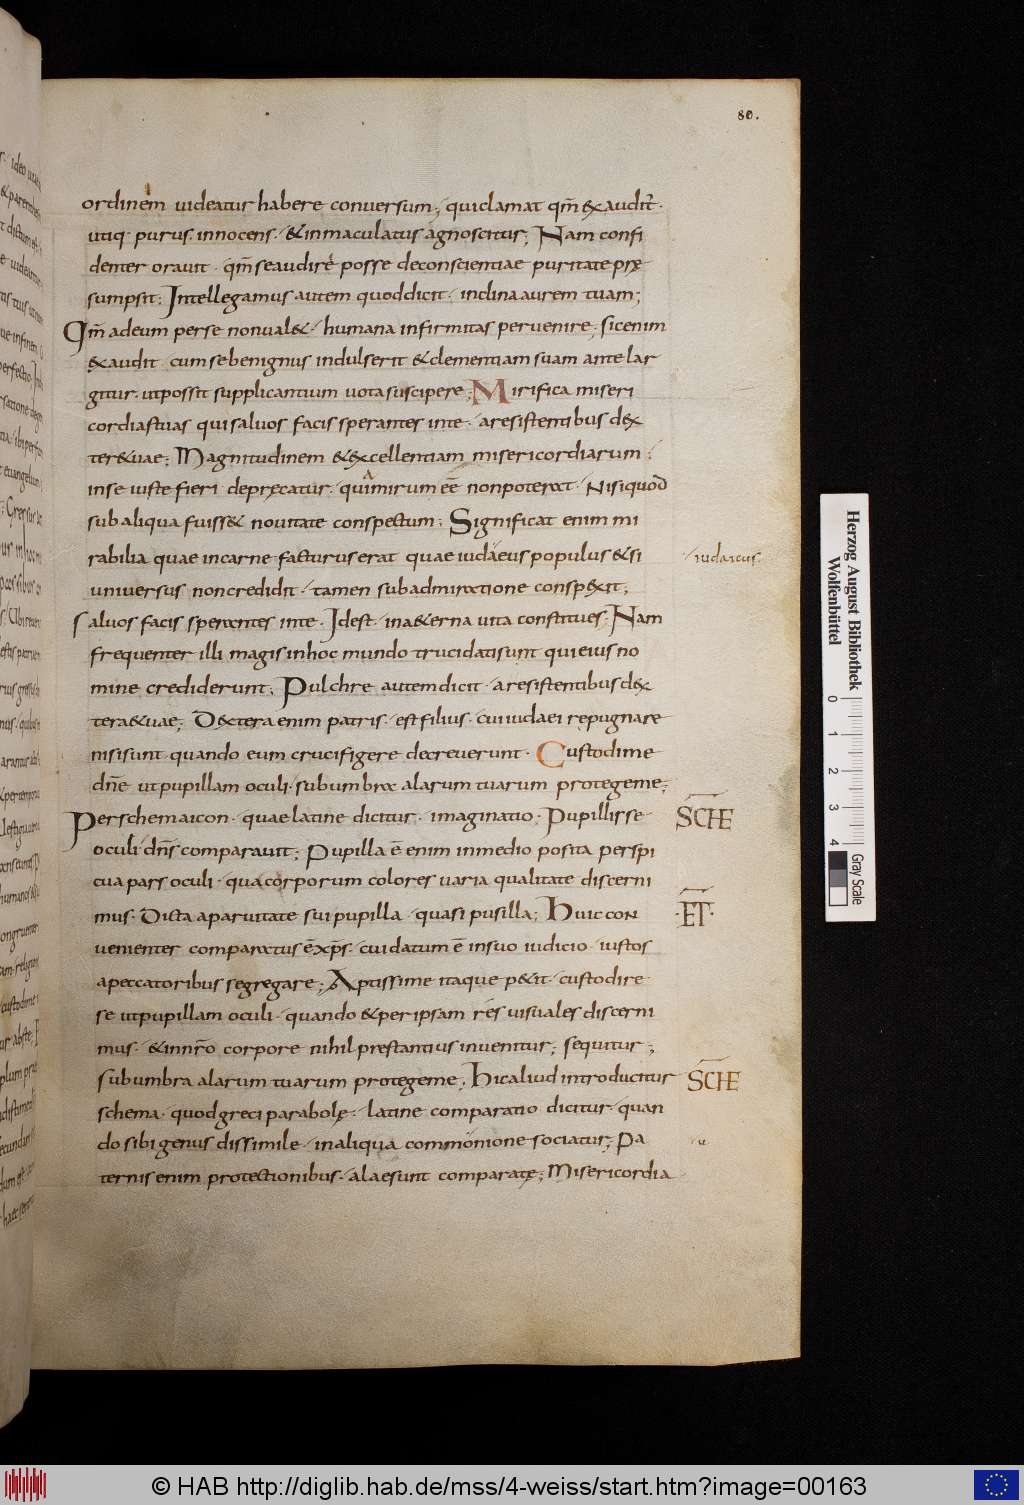 80.
ordinem videatur habere conversum; qui clamat qm̄ exaudit̄.
utiq· purus. innocens. &inmaculatus agnoscitur; Nam confi
denter oravit. qm̄ seaudirē posse deconscientiae puritate prę
sumpsit; Intellegamus autem quoddicit. inclina aurem tuam;
Qm̄ adeum perse nonval&. humana infirmitas pervenire; sicenim
exaudit. cumsebenignus indulserit &clementiam suam ante lar
gitur. utpossit supplicantium vota suscipere; Mirifica miseri
cordiastuas qui salvos facis sperantes inte. aresistentibus dex
ter&uae; Magnitudinem &excellentiam misericordiarum;
inse iuste fieri deprecatur. quiamirum eē nonpoterat. Nisi quod
sub aliqua fuiss& novitate conspectum; Significat enim mi
rabilia quae incarne facturus erat quae iudaeus populus &si
iudaicus
universus non credidit. tamen sub admiratione conspexit;
Salvos facis sperantes inte. Idest. ina&erna vita constitues; Nam
frequenter illi magis inhoc mundo trucidati sunt qui eius no
mine crediderunt; Pulchre autem dicit. aresistentibus dex
tera&uae; Dextera enim patris. est filius. cui iudaei repugnare
nisi sunt quando eum crucifigere decreverunt. Custodime
dn̄e ut pupillam oculi. subumbra alarum tuarum protegeme;
Perschemaicon. quae latine dicitur. imaginatio. Pupillis se
SCHE
oculi dn̄s comparavit; Pupilla ē enim inmedio posita perspi
cua pars oculi. qua corporum colores varia qualitate discerni
mus. Dicta aparvitate sui pupilla. quasi pusilla; Huic con
·ET·
venienter comparatus ē xp̄s. cui datum ē insuo iudicio. iustos
apeccatoribus segregare; Aptissime itaque p&it. custodire
se ut pupillam oculi. quando &per ipsam res visuales discerni
mus. &innr̄o corpore nihil prestantius invenitur; sequitur;
subumbra alarum tuarum protegeme; Hic aliud introducitur
SCHE
schema. quod greci parabolę. latine comparatio dicitur. quan
do sibi genus dissimile. inaliqua commonione sociatur; Pa
u
ternis enim protectionibus. alae sunt comparatę; Misericordia
Herzog August Bibliothek
Wolfenbüttel
0 1 2 3 4
Gray Scale
© HAB http://diglib.hab.de/mss/4-weiss/start.htm?image=00163